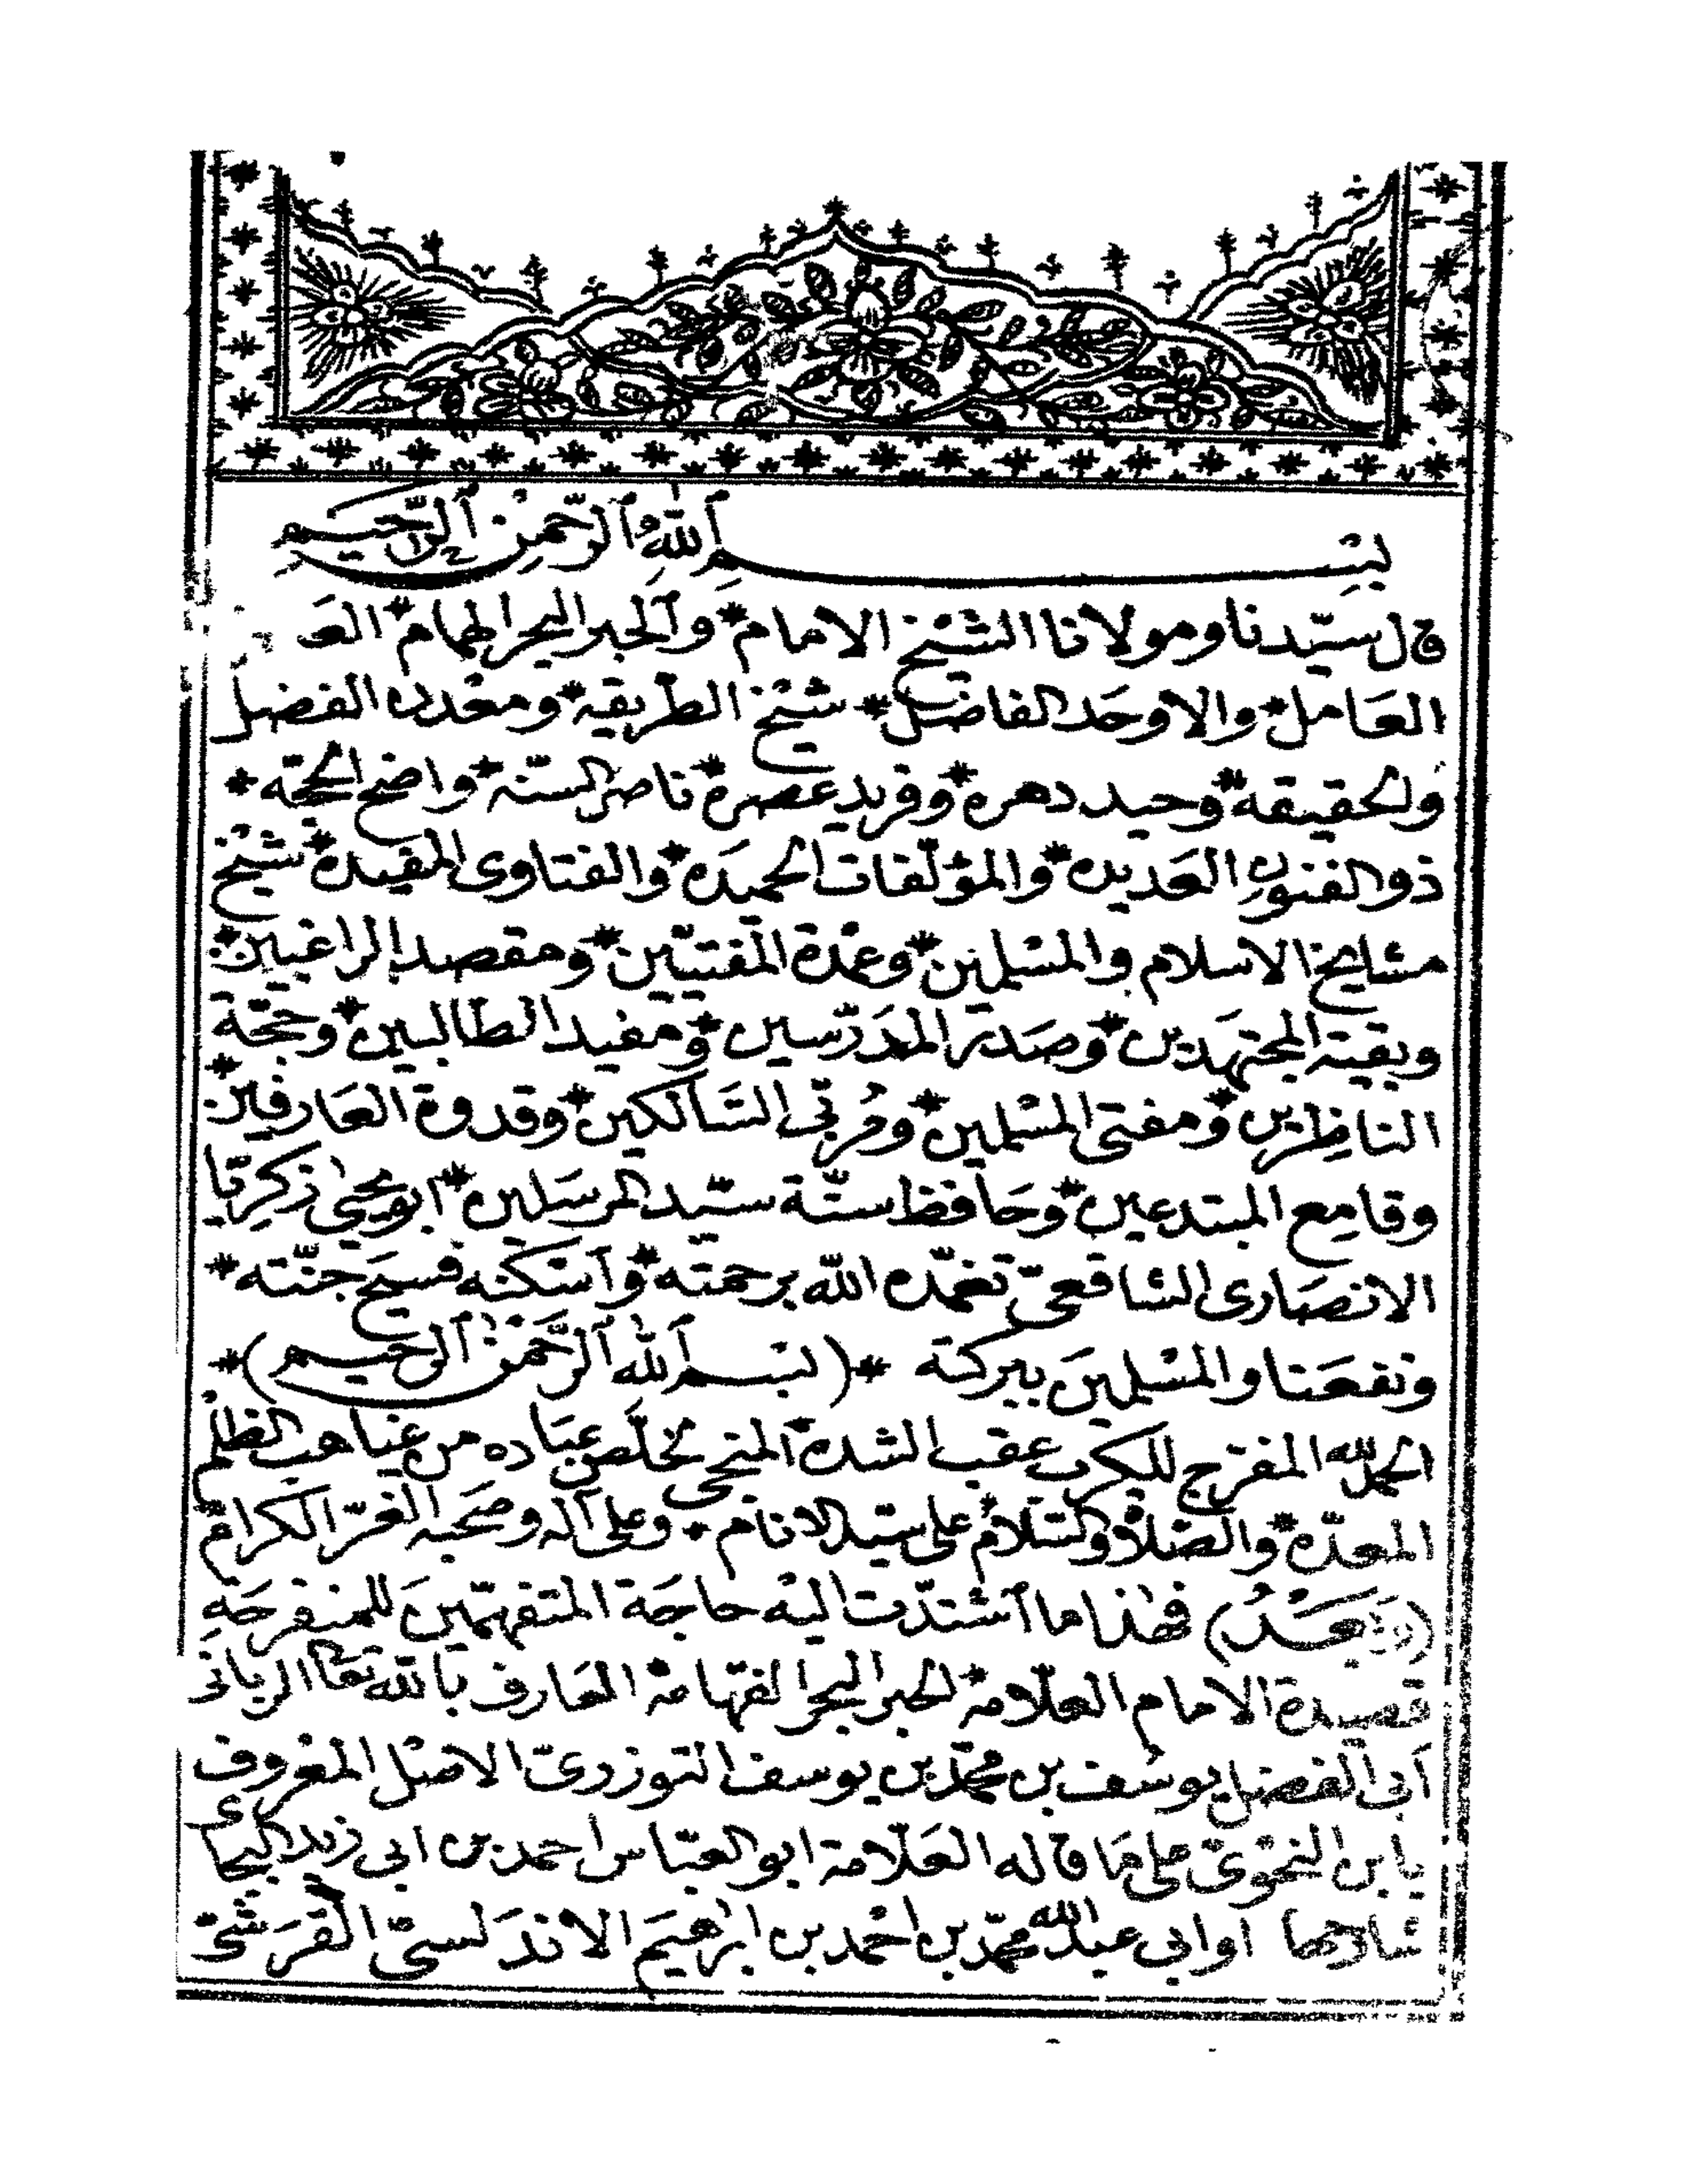 بسم الله الرحمن الرحيم
قال سيّدنا ومولانا الشيخ الامام * والحبر البحر الهمام *
العَامل * والاوحَد الفاضل * شيخ الطريقه * ومعدن الفضل
والحقيقه * وحيد دهره * وفريد عصره * ناصر السنّه * واضح الحجّه *
ذو الفنون العَديده * والمؤلّفات الحميدَه * والفتاوى المفيده * شيخ
مشايخ الاسلام والمسْلمين * وعمْدة المفتيّين * ومقصد الراغبين *
وبقيّة المجتهَدين * وصَدر المدَرّسين * ومفيد الطالبين * وحجّة
الناظِرين * ومفتى المسْلمين * ومُربّى السَّالكين * وقدوة العَارفين *
وقامِع المبتدعين * وحَافظ سنّة سيّد المرسَلين * ابو يحيٰى زكرِيّا
الانصَارى الشافعىّ تغمّده الله برحمته * وآسْكنه فسيح جنّته *
ونفعَنا والمسْلمينَ ببركته * (بسم الله الرَّحمٰن الرحيم) *
الحمد لله المفرّج للكرب عقب الشده * المنجى مخلّص عبَاده من غياهب الظلْم
المعدّه * والصَّلاة والسَّلامُ على سيّد الانام * وعلى آله وصَحبه الغرّ الكرام
(وبَعَدُ) فهٰذا ما آشتدّت اليْه حاجَة المتفهّمينَ للمنفرجَةِ
قصيدة الامام العلّامة * الحبر البحر الفهّامة * العَارف بالله تعالى الربانى
اَبى الفضل يوسُف بن محمّد بن يوسف التوزرىّ الاصْل المعْروف
بابن النحْوىّ على مَا قاله العَلّامة ابو العبّاس احمد بن ابى زيد البجاىٔ
شارحها اوابى عبد الله محمّد بن احْمد بن ابرٰهيَم الاندَلسىّ القرَشىّ